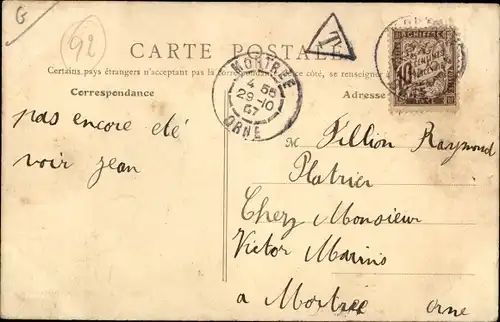 G
92
T
CARTE POSTALE
Certains pays étrangers n'acceptant pas la correspondance ce côté, se renseigner à
Correspondance
Adresse
MORTRÉE
4 55
29-10
07
ORNE
CHIFFRE
10
pas encore été
voir jean
M Fillion Raymond
Platrier
Chez Monsieur
Victor Marins
a Mortree Orne